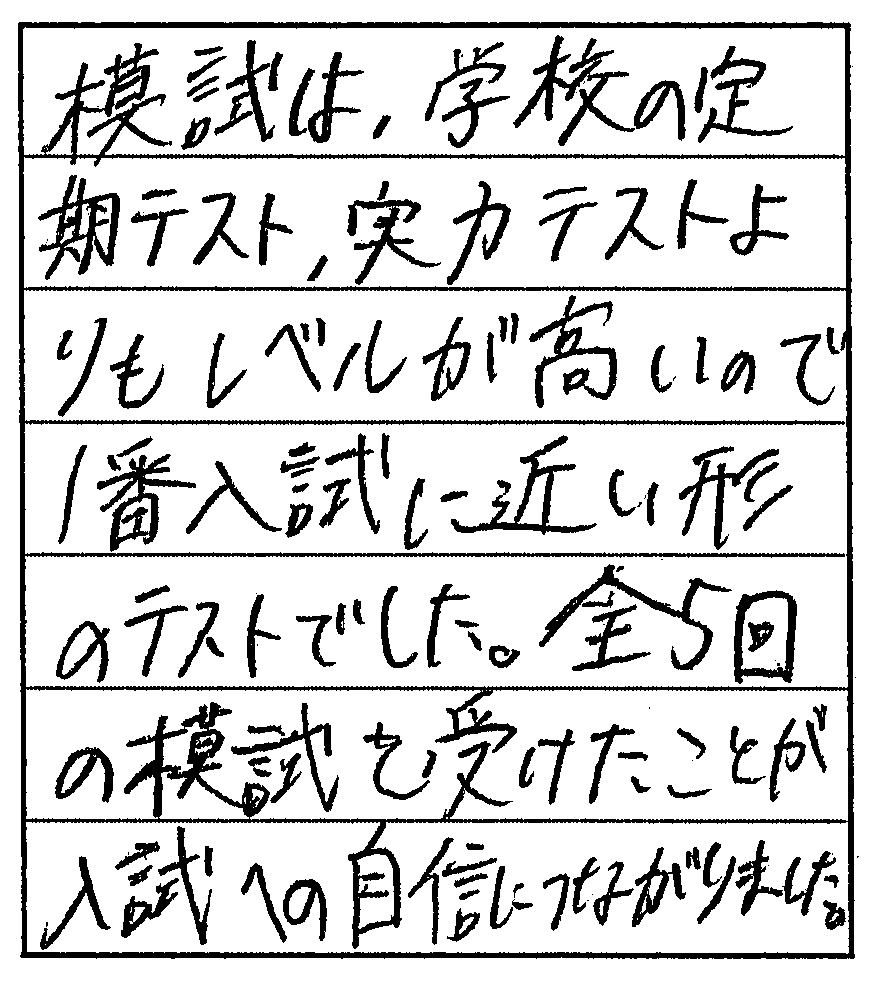 模試は，学校の定
期テスト，実力テストよ
りもレベルが高いので
1番入試に近い形
のテストでした。全5回
の模試を受けたことが
入試への自信につながりました。